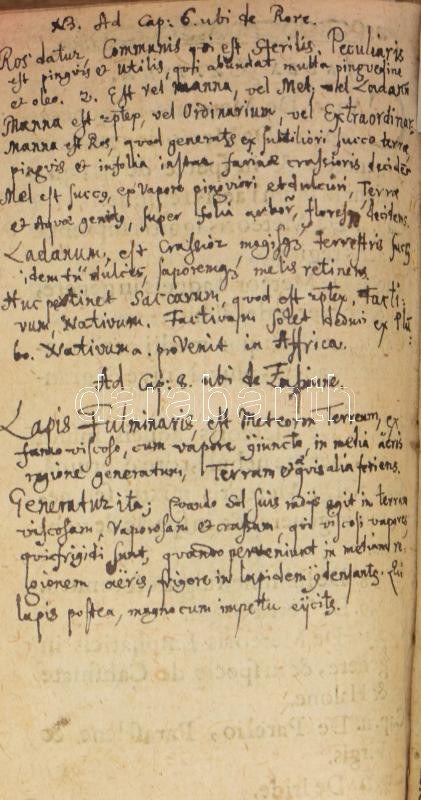 NB. Ad Cap: 6. ubi de Rore.
Ros datur, Communis qui est sterilis. Peculiaris
est pinguis et utilis, qui abundat multa pinguedine
et oleo. 2. Est vel manna, vel Mel, vel Ladanum
Manna est, vel Ordinarium, vel Extraordinar.
Manna est Ros, quod generatur ex subtiliori succo terrae
pinguis et in folia instar farinae crassioris decidens
Mel est succus, ex vapore pinguiori et dulciori, Terrae
et Aquae genitus, super folia arbor, floresque decidens.
Ladanum, est Crassior magisque terrestris succus
idem tn dulces, saporemque melis retinens.
Huc pertinet Saccarum, quod est, Facti:
vum, Nativum. Factivum solet deduci ex
Nativum a. provenit in Affrica.
Ad Cap: 8. ubi de
Lapis Fulminaris est Meteoron Terreum, ex
fumo viscoso, cum vapore, in media aëris
regione generatum, Terram et quaevis alia feriens.
Generatur ita; Quando Sol suis radijs egit in terram
viscosam, vaporosam et crassam, qui viscosi vapores
qui frigidi sunt, quando perveniunt in mediam re,
gionem aëris, frigore in lapidem. Qui
lapis postea, magno cum impetu eijcitur.
darabanth
De
De Parelio, Paraselene, &
Virgis.
De Iride,